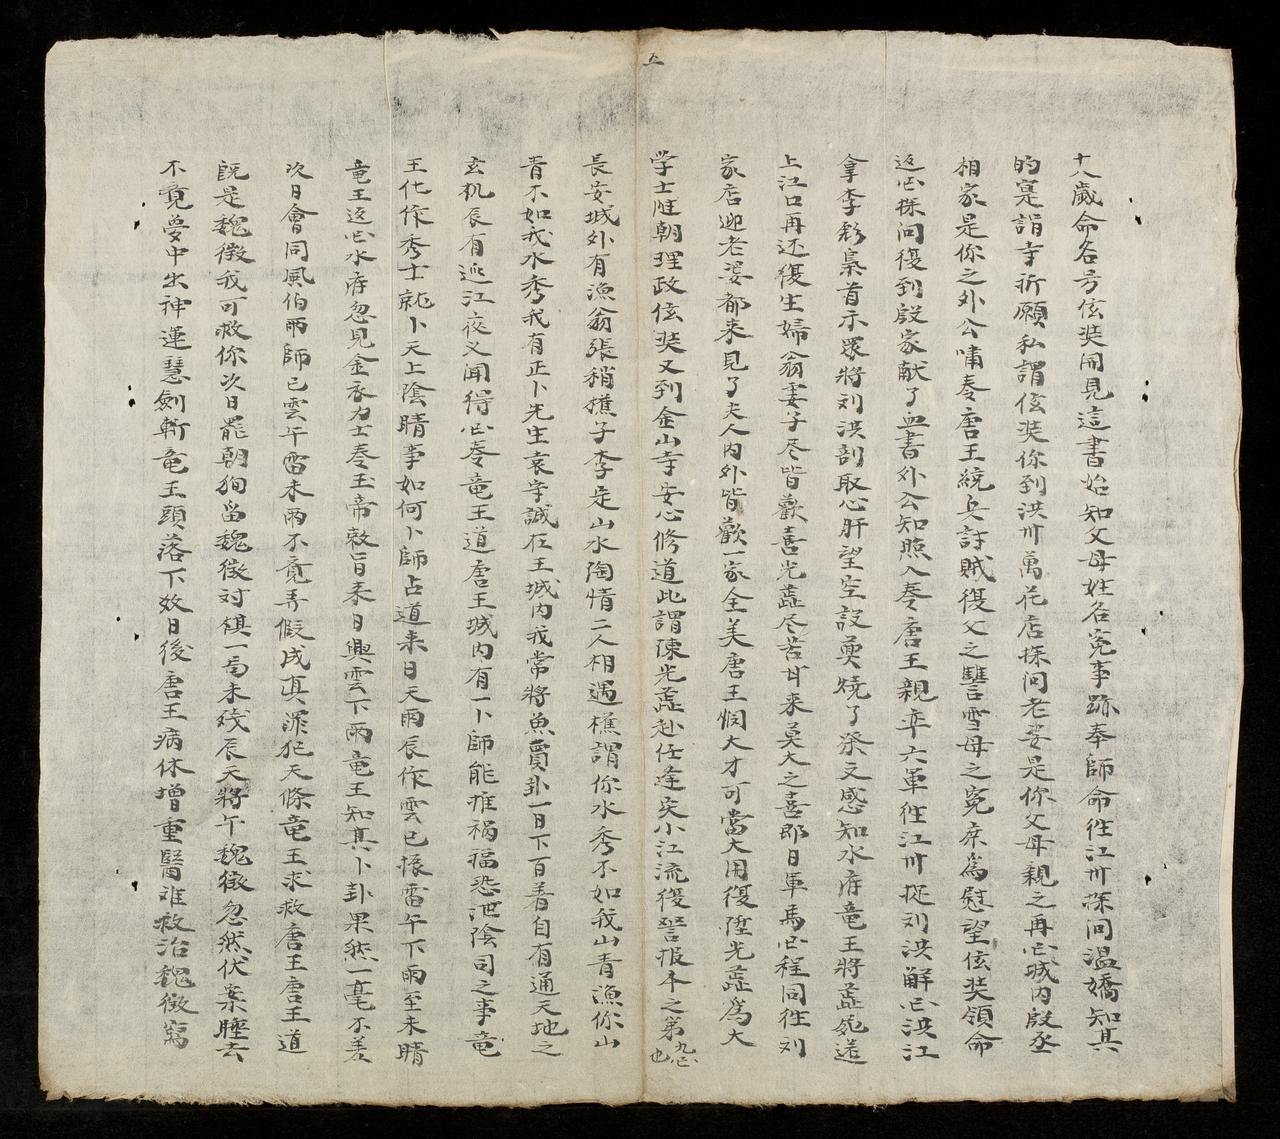 五
十八歲命名号伭奘開見這書始知父母姓名冤事跡奉師命徃江州探问温嬌知其
的寔詣寺祈願私謂伭奘你到洪州萬花店探问老婆是你父母親之再囬城内殷丞
相家是你之外公嘯奏唐王統兵討賊復父之讐雪母之冤庶為慰望伭奘領命
返囬探问復到殷家献了血書外公知照入奏唐王親率六軍徃江州捉刘洪解囬洪江
拿李彪梟首示眾將刘洪剖取心肝望空設奠燒了祭文感知水府竜王將蕋屍送
上江口再还復生婦翁妻子尽皆歡喜光蕋尽苦甘来莫大之喜即日軍馬囬程同徃刘
家店迎老婆都来見了夫人内外皆歡一家全美唐王憫大才可當大用復陞光蕋為大
学士隨朝理政伭奘又到金山寺安心修道此謂陳光蕋赴任逢災小江流復讐报本之第九囬也
長安城外有漁翁張稍樵子李定山水陶情二人相遇樵謂你水秀不如我山青漁你山
青不如我水秀我有正卜先生袁守誠在王城内我常將魚賣卦一日下百着自有通天地之
玄机辰有巡江夜乂聞得囬奏竜王道唐王城内有一卜師能推禍福恐泄陰司之事竜
王化作秀士就卜天上陰晴事如何卜師占道来日天雨辰作雲巳振雷午下雨至未晴
竜王返囬水府忽見金衣力士奏玉帝敕旨来日興雲下雨竜王知其卜卦果然一毫不差
次日會同風伯雨師巳雲午雷未雨不覔弄假成真罪犯天條竜王求救唐王唐王道
既是魏徵我可救你次日罷朝狥留魏徵对棋一局未残辰天將午魏徵忽然伏案睡去
不覔夢中出神運慧劍斬竜王頭落下效日後唐王病体增重醫难救治魏徵寫